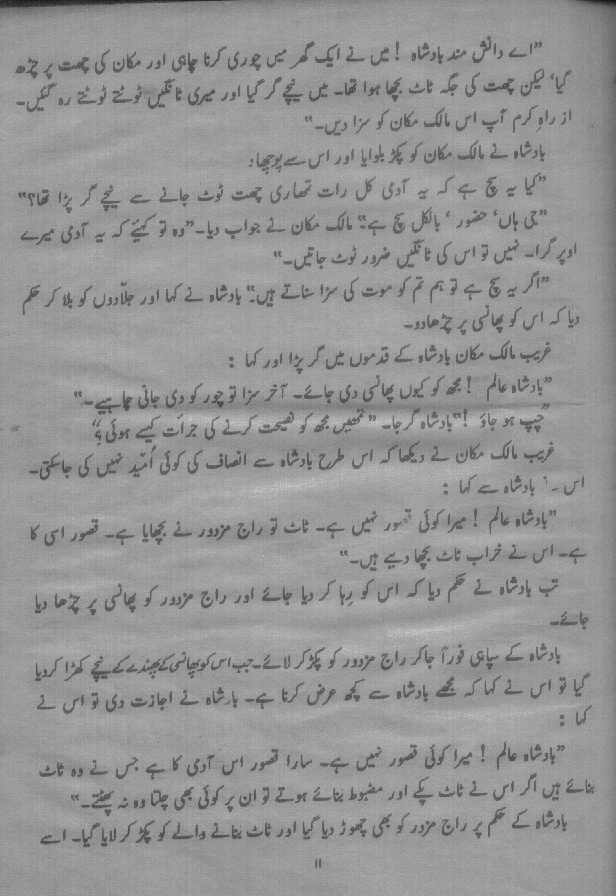 ”اے دانش مند بادشاہ ! میں نے ایک گھر میں چوری کرنا چاہی اور مکان کی چھت پر چڑھ
گیا، لیکن چھت کی جگہ ٹاٹ بچھا ہوا تھا۔ میں نیچے گر گیا اور میری ٹانگیں ٹوٹتے ٹوٹتے رہ گئیں۔
از راہِ کرم آپ اس مالک مکان کو سزا دیں۔“
بادشاہ نے مالک مکان کو پکڑ بلوایا اور اس سے پوچھا:
”کیا یہ سچ ہے کہ یہ آدمی کل رات تمھاری چھت ٹوٹ جانے سے نیچے گر پڑا تھا؟“
”جی ہاں، حضور، بالکل سچ ہے“ مالک مکان نے جواب دیا۔ ”وہ تو کہئے کہ یہ آدمی میرے
اوپر گرا۔ نہیں تو اس کی ٹانگیں ضرور ٹوٹ جاتیں۔“
”اگر یہ سچ ہے تو ہم تم کو موت کی سزا سناتے ہیں“ بادشاہ نے کہا اور جلّادوں کو بلا کر حکم
دیا کہ اس کو پھانسی پر چڑھا دو۔
غریب مالک مکان بادشاہ کے قدموں میں گر پڑا اور کہا :
”بادشاہ عالم ! مجھ کو کیوں پھانسی دی جائے۔ آخر سزا تو چور کو دی جانی چاہیے۔“
”چپ ہو جاؤ !“ بادشاہ گرجا۔ ”تمھیں مجھ کو نصیحت کرنے کی جرأت کیسے ہوئی؟“
غریب مالک مکان نے دیکھا کہ اس طرح بادشاہ سے انصاف کی کوئی اُمّید نہیں کی جا سکتی۔
اس نے بادشاہ سے کہا :
”بادشاہ عالم ! میرا کوئی قصور نہیں ہے۔ ٹاٹ تو راج مزدور نے بچھایا ہے۔ قصور اسی کا
ہے۔ اس نے خراب ٹاٹ بچھا دیے ہیں۔“
تب بادشاہ نے حکم دیا کہ اس کو رِہا کر دیا جائے اور راج مزدور کو پھانسی پر چڑھا دیا
جائے۔
بادشاہ کے سپاہی فوراً جاکر راج مزدور کو پکڑ کر لائے۔ جب اس کو پھانسی کے پھندے کے نیچے کھڑا کر دیا
گیا تو اس نے کہا کہ مجھے بادشاہ سے کچھ عرض کرنا ہے۔ بادشاہ نے اجازت دی تو اس نے
کہا :
”بادشاہ عالم ! میرا کوئی قصور نہیں ہے۔ سارا قصور اس آدمی کا ہے جس نے وہ ٹاٹ
بنائے ہیں اگر اس نے ٹاٹ پکے اور مضبوط بنائے ہوتے تو ان پر کوئی بھی چلتا وہ نہ پھٹتے۔“
بادشاہ کے حکم پر راج مزدور کو بھی چھوڑ دیا گیا اور ٹاٹ بنانے والے کو پکڑ کر لایا گیا۔ اسے
۱۱